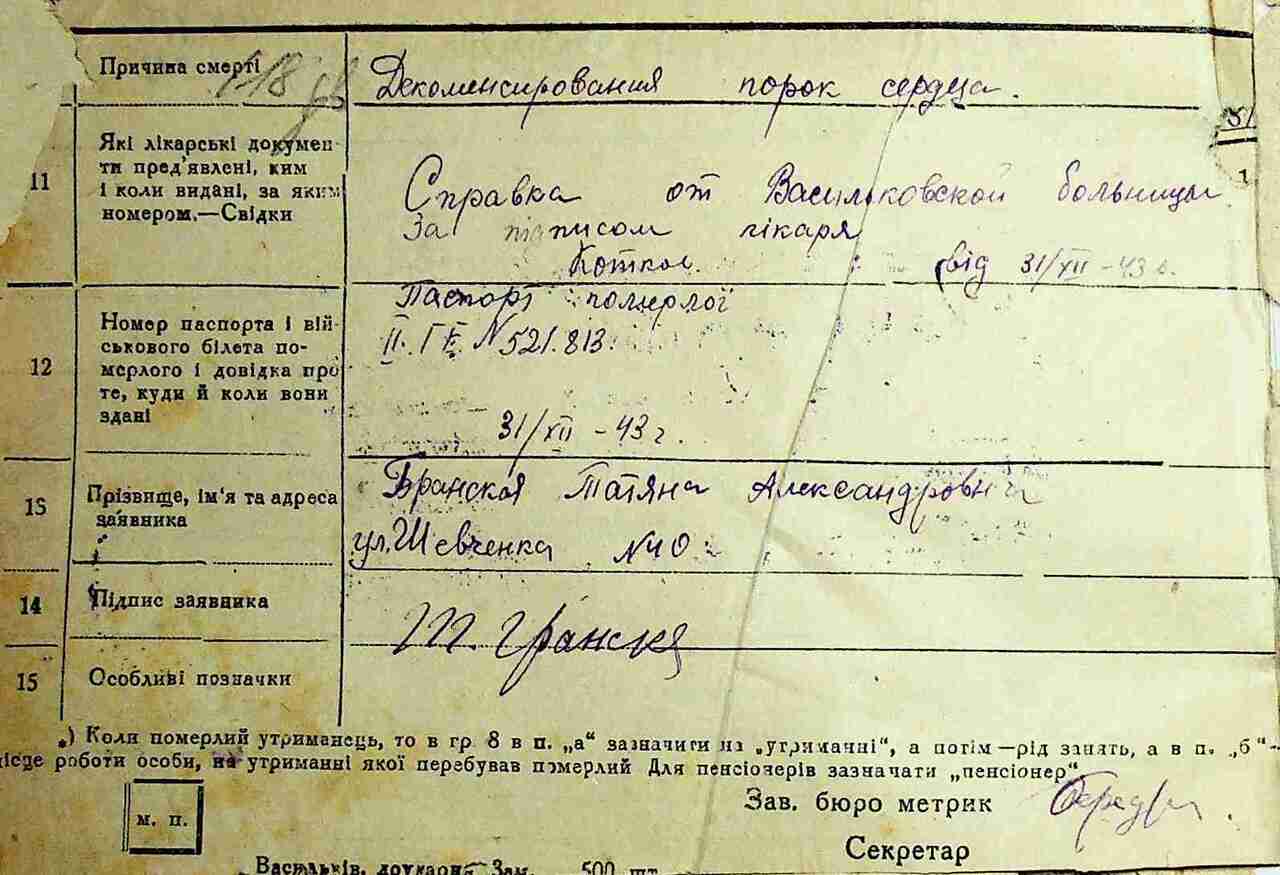 Причина смерті
Декоменсирования порок сердца.
11
Які лікарські докумен-
ти пред'явлені, ким
і коли видані, за яким
номером.—Свідки
Справка от Васильковской больницы.
За підписом лікаря
від 31/XII -43 г.
12
Номер паспорта і вій-
ськового білета по-
мерлого і довідка про
те, куди й коли вони
здані
Паспорт померлої
№ 521.813.
31/XII -43 г.
13
Прізвище, ім'я та адреса
заявника
Бранская Татяна Александровна
ул. Шевченка № 40
14
Підпис заявника
15
Особливі позначки
*) Коли померлий утриманець, то в гр. 8 в п. „а“ зазначити на „утриманні“, а потім—рід занять, а в п. „б“—
місце роботи особи, на утриманні якої перебував померлий Для пенсіонерів зазначати „пенсіонер“
м. п.
Зав. бюро метрик
Секретар
Васильків, друкарня Зам. 500 шт.